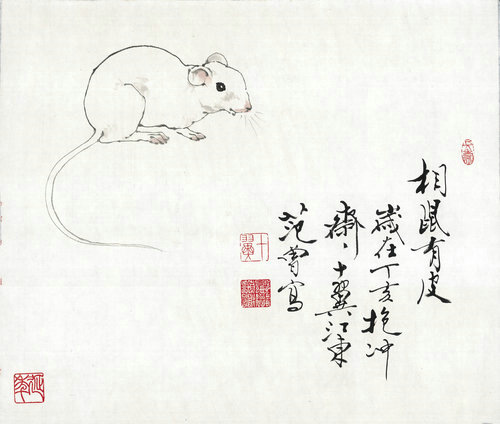 相鼠有皮
歲在丁亥抱冲
齋十翼江東
范曾寫
十翼
延年